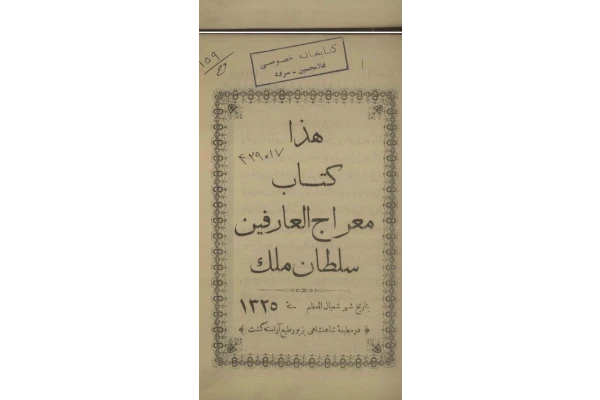 ۱۵۹
کتابخانه خصوصی
غلامحسین - سرود
هذا
۴۲۹۰۱۷
کتاب
معراج العارفین
سلطان ملك
بتاریخ شهر شعبان المعظم سنة ۱۳۲۵
در مطبعهٔ شاهنشاهی بزیور طبع آراسته گشت